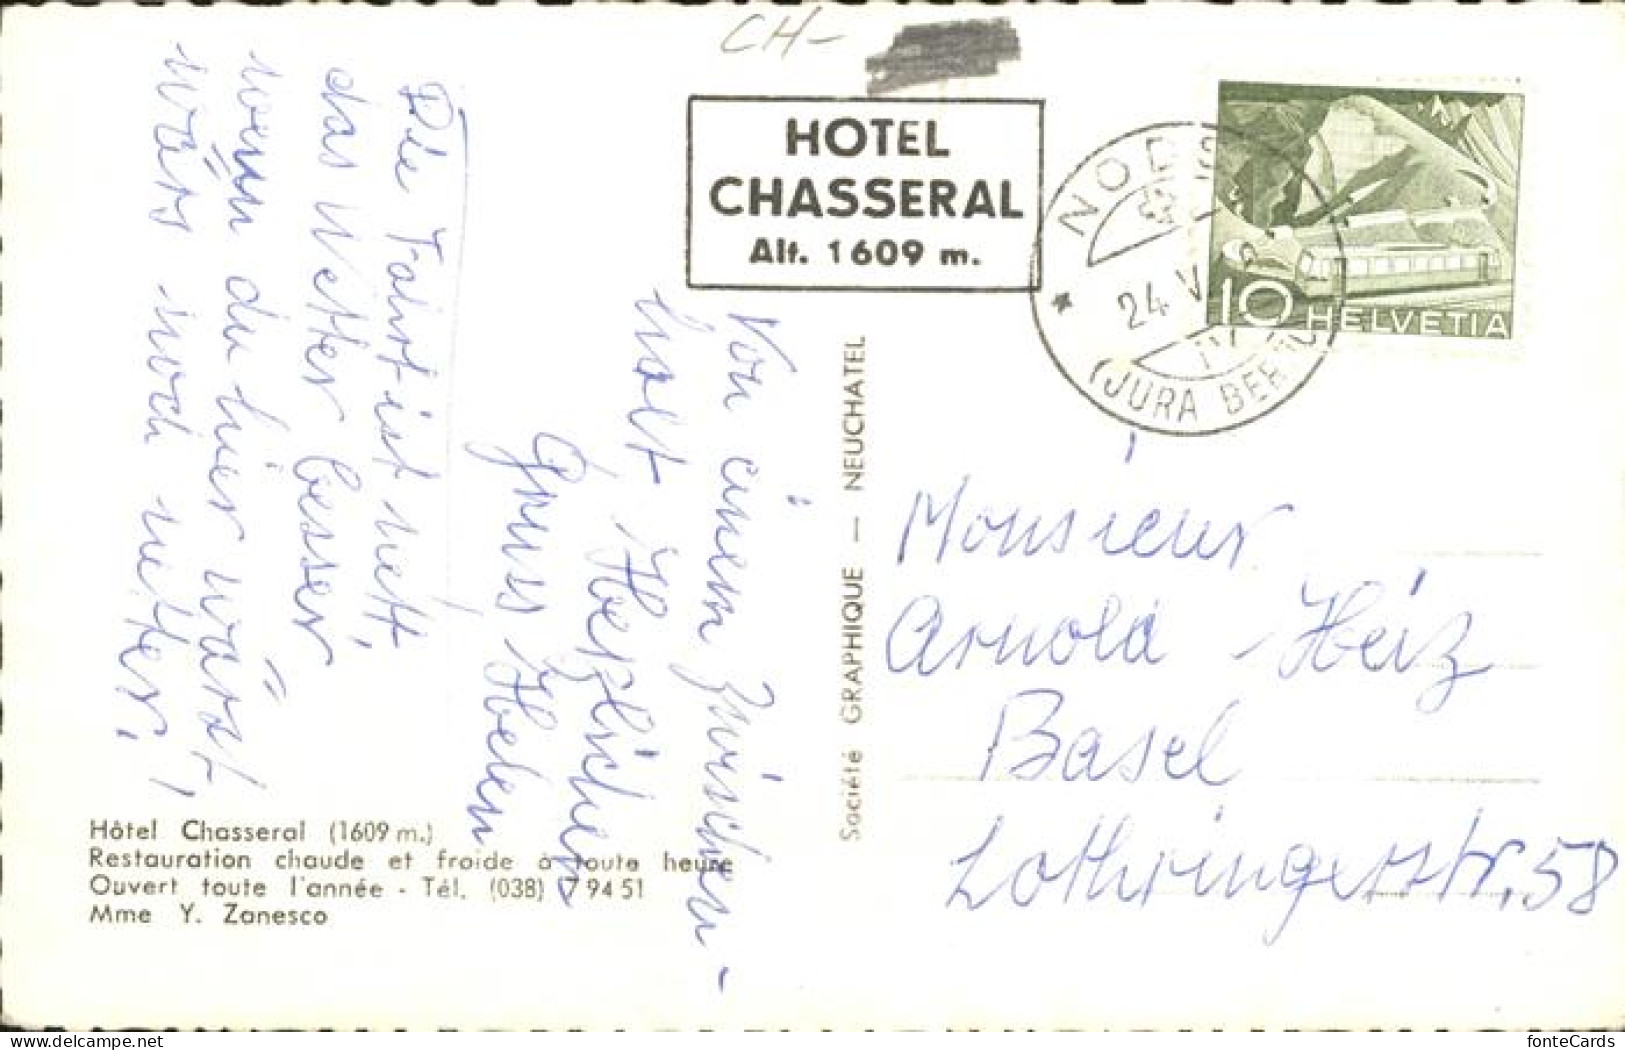 CH-
HOTEL
CHASSERAL
Alt. 1609 m.
NODS
24 V
(JURA BERNOIS)
10 HELVETIA
Von einem Zwischen-
halt Herzlichen
Gruss Helen
Die Fahrt ist nett,
das Wetter besser
wenn du hier wärst,
wärs noch netter!
Société GRAPHIQUE — NEUCHATEL
Monsieur
Arnold Heiz
Basel
Lothringerstr. 58
Hôtel Chasseral (1609 m.)
Restauration chaude et froide à toute heure
Ouvert toute l'année - Tél. (038) 7 94 51
Mme Y. Zanesco
fonteCards